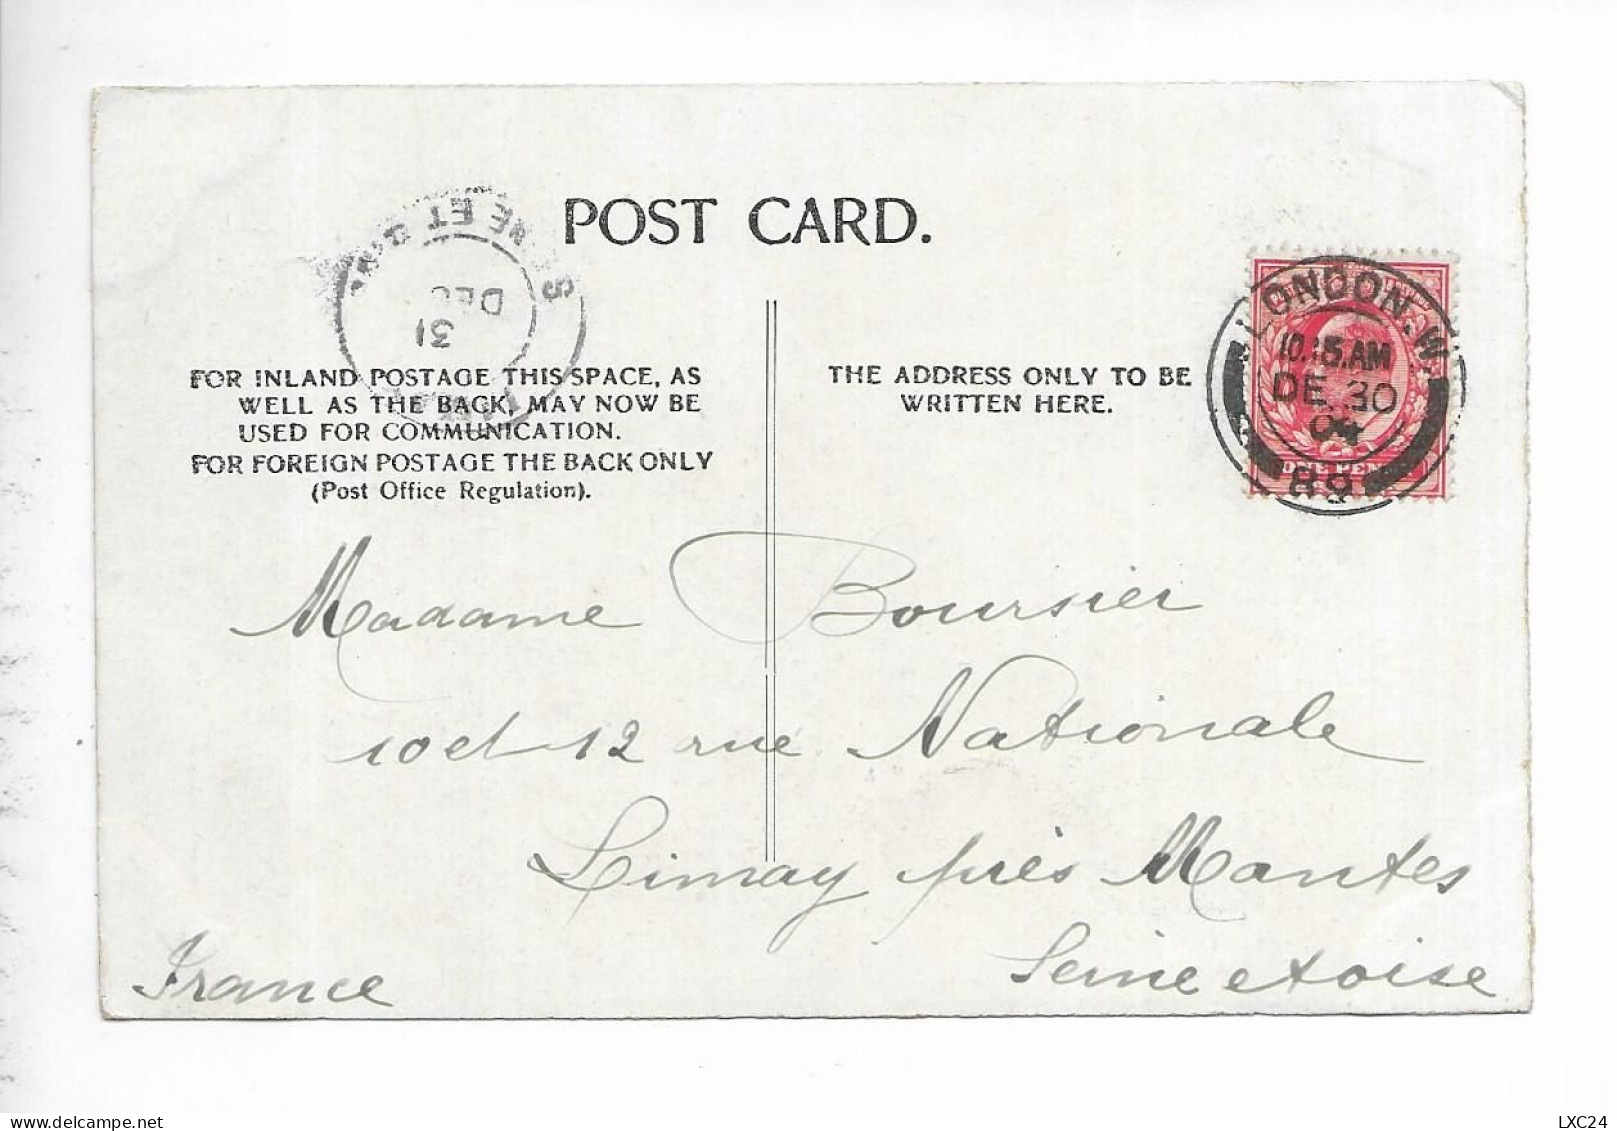 POST CARD.
SEINE ET
DEC
31
FOR INLAND POSTAGE THIS SPACE, AS
WELL AS THE BACK, MAY NOW BE
USED FOR COMMUNICATION.
FOR FOREIGN POSTAGE THE BACK ONLY
(Post Office Regulation).
THE ADDRESS ONLY TO BE
WRITTEN HERE.
LONDON. W.
10.15.AM
DE 30
04
89
Madame Boursier
10 et 12 rue Nationale
Limay près Mantes
Seine et oise
France
LXC24